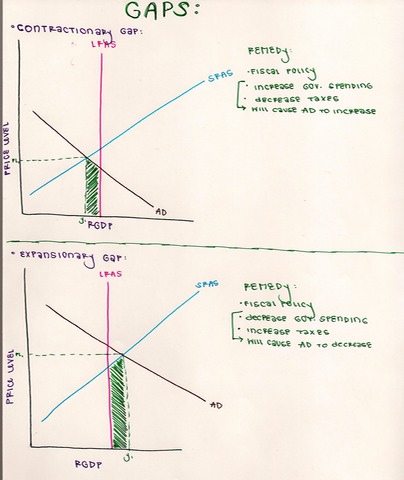 GAPS:
• CONTRACTIONARY GAP:
LRAS
SRAS
PRICE LEVEL
AD
RGDP
REMEDY:
• FISCAL POLICY
• INCREASE GOV. SPENDING
• DECREASE TAXES
→ WILL CAUSE AD TO INCREASE
• EXPANSIONARY GAP:
LRAS
SRAS
PRICE LEVEL
AD
RGDP
REMEDY:
• FISCAL POLICY
• DECREASE GOV. SPENDING
• INCREASE TAXES
→ WILL CAUSE AD TO DECREASE